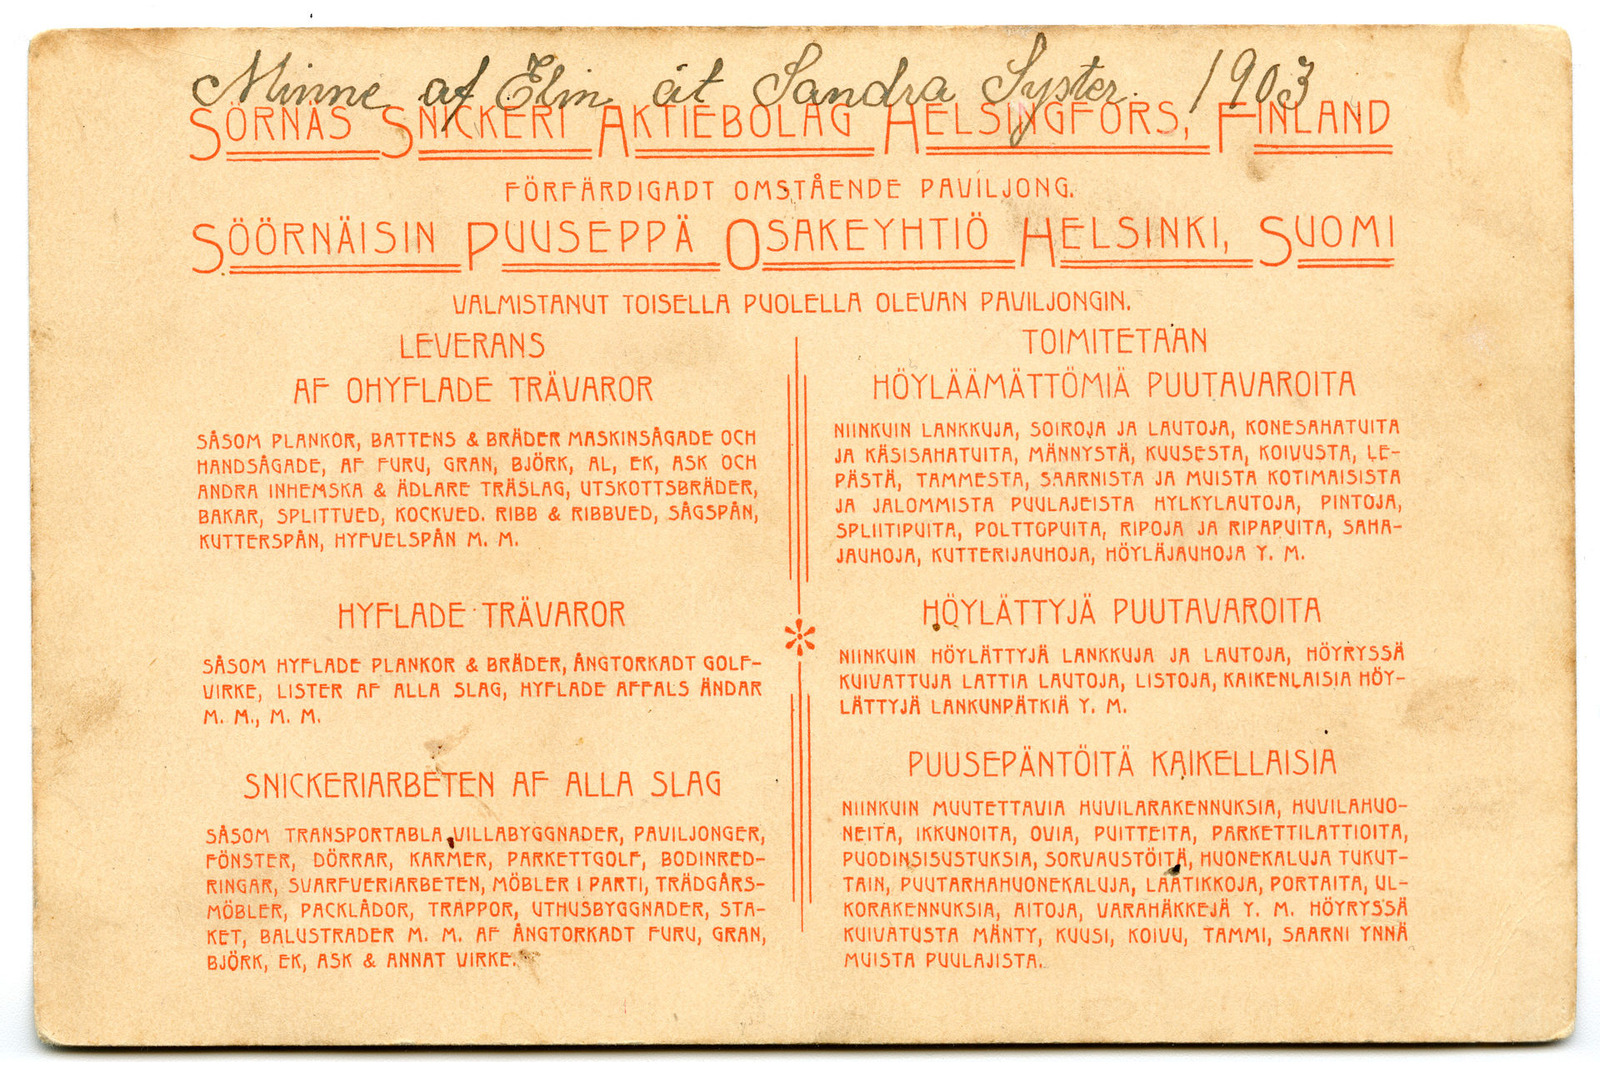 Minne af Elin åt Sandra Syster. 1903
SÖRNÄS SNICKERI AKTIEBOLAG HELSINGFORS, FINLAND
FÖRFÄRDIGADT OMSTÅENDE PAVILJONG.
SÖÖRNÄISIN PUUSEPPÄ OSAKEYHTIÖ HELSINKI, SUOMI
VALMISTANUT TOISELLA PUOLELLA OLEVAN PAVILJONGIN.
LEVERANS
AF OHYFLADE TRÄVAROR
SÅSOM PLANKOR, BATTENS & BRÄDER MASKINSÅGADE OCH
HANDSÅGADE, AF FURU, GRAN, BJÖRK, AL, EK, ASK OCH
ANDRA INHEMSKA & ÄDLARE TRÄSLAG, UTSKOTTSBRÄDER,
BAKAR, SPLITTVED, KOCKVED. RIBB & RIBBVED, SÅGSPÅN,
KUTTERSPÅN, HYFVELSPÅN M. M.
HYFLADE TRÄVAROR
SÅSOM HYFLADE PLANKOR & BRÄDER, ÅNGTORKADT GOLF-
VIRKE, LISTER AF ALLA SLAG, HYFLADE AFFALS ÄNDAR
M. M., M. M.
SNICKERIARBETEN AF ALLA SLAG
SÅSOM TRANSPORTABLA VILLABYGGNADER, PAVILJONGER,
FÖNSTER, DÖRRAR, KARMER, PARKETTGOLF, BODINRED-
RINGAR, SVARFVERIARBETEN, MÖBLER I PARTI, TRÄDGÅRS-
MÖBLER, PACKLÅDOR, TRAPPOR, UTHUSBYGGNADER, STA-
KET, BALUSTRADER M. M. AF ÅNGTORKADT FURU, GRAN,
BJÖRK, EK, ASK & ANNAT VIRKE.
TOIMITETAAN
HÖYLÄÄMÄTTÖMIÄ PUUTAVAROITA
NIINKUIN LANKKUJA, SOIROJA JA LAUTOJA, KONESAHATUITA
JA KÄSISAHATUITA, MÄNNYSTÄ, KUUSESTA, KOIVUSTA, LE-
PÄSTÄ, TAMMESTA, SAARNISTA JA MUISTA KOTIMAISISTA
JA JALOMMISTA PUULAJEISTA HYLKYLAUTOJA, PINTOJA,
SPLIITIPUITA, POLTTOPUITA, RIPOJA JA RIPAPUITA, SAHA-
JAUHOJA, KUTTERIJAUHOJA, HÖYLÄJAUHOJA Y. M.
HÖYLÄTTYJÄ PUUTAVAROITA
NIINKUIN HÖYLÄTTYJÄ LANKKUJA JA LAUTOJA, HÖYRYSSÄ
KUIVATTUJA LATTIA LAUTOJA, LISTOJA, KAIKENLAISIA HÖY-
LÄTTYJÄ LANKUNPÄTKIÄ Y. M.
PUUSEPÄNTÖITÄ KAIKELLAISIA
NIINKUIN MUUTETTAVIA HUVILARAKENNUKSIA, HUVILAHUO-
NEITA, IKKUNOITA, OVIA, PUITTEITA, PARKETTILATTIOITA,
PUODINSISUSTUKSIA, SORVAUSTÖITÄ, HUONEKALUJA TUKUT-
TAIN, PUUTARHAHUONEKALUJA, LAATIKKOJA, PORTAITA, UL-
KORAKENNUKSIA, AITOJA, VARAHÄKKEJÄ Y. M. HÖYRYSSÄ
KUIVATUSTA MÄNTY, KUUSI, KOIVU, TAMMI, SAARNI YNNÄ
MUISTA PUULAJISTA.